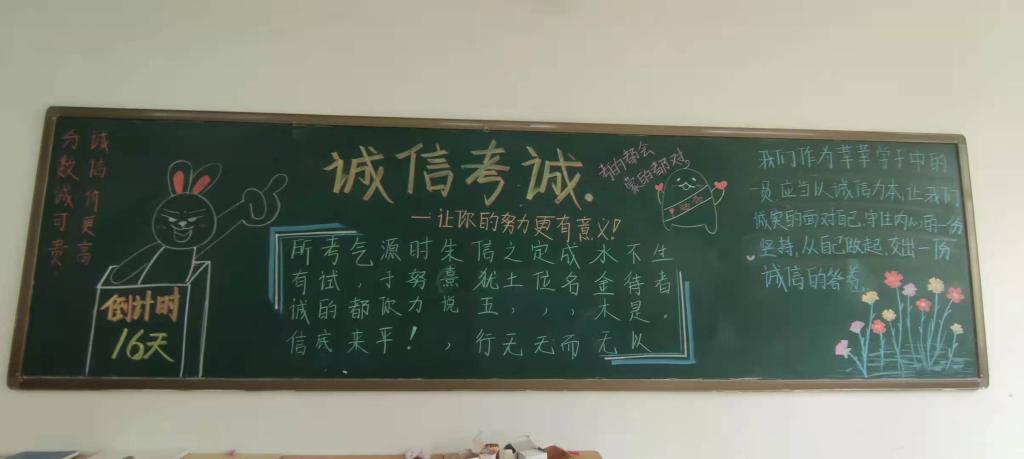 分数诚可贵
诚信价更高
倒计时
16天
诚信考诚.
一让你的努力更有意义!
考的都会
蒙的都对
所有诚信
考试的底
气,都来
源于你平
时努力!
朱熹悦,
信犹五行
之土,无
定位,无
成名,而
水金木无
不待是以
生者。
我们作为莘莘学子中的
一员 应当从诚信为本,让我们
诚实的面对自己,守住内心那一份
坚持,从自己做起,交出一份
诚信的答卷.